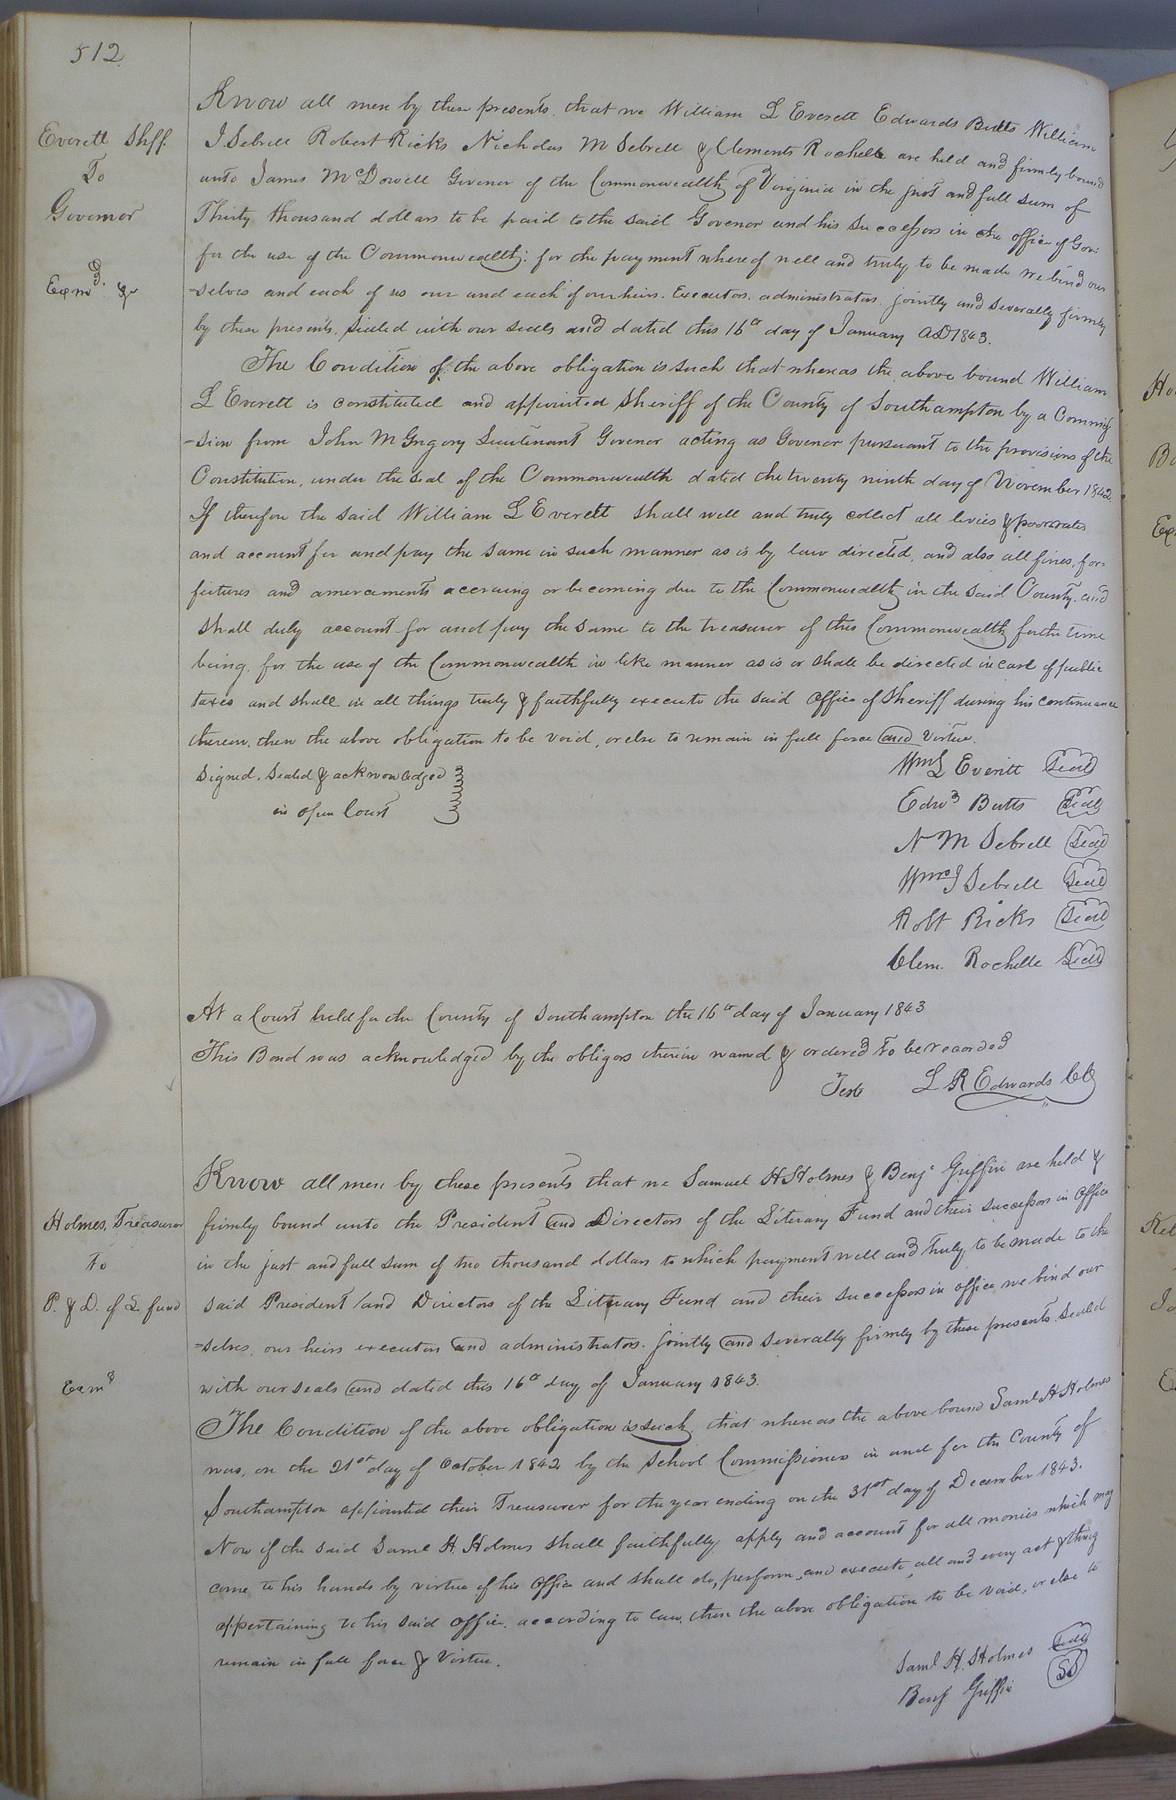 512
Everett Shff.
To
Governor
Exmd. &
Know all men by these presents that we William L Everett Edwards Butts William
J Sebrell Robert Ricks Nicholas M Sebrell & Clements Rochelle are held and firmly bound
unto James McDowell Govenor of the Commonwealth of Virginia in the just and full sum of
Thirty thousand dollars to be paid to the said Govenor and his Successors in the office of Gov.
for the use of the Commonwealth; for the payment whereof well and truly to be made we bind our
-selves and each of us our and each of our heirs. Executors. administrators jointly and severally firmly
by these presents. Sealed with our seals and dated this 16th day of January AD 1843.
The Condition of the above obligation is such that whereas the above bound William
L Everett is constituted and appointed Sheriff of the County of Southampton by a Commis
-sion from John M Gregory Lieutenant Govenor acting as Govenor pursuant to the provisions of the
Constitution, under the seal of the Commonwealth dated the twenty ninth day of November 1842
If therefore the said William L Everett shall well and truly collect all levies & poor rates
and account for and pay the same in such manner as is by law directed, and also all fines, for-
fietures and amercements accruing or becoming due to the Commonwealth in the said County, and
shall duly account for and pay the same to the treasurer of this Commonwealth for the time
being, for the use of the Commonwealth in like manner as is or shall be directed in case of public
taxes and shall in all things truly & faithfully execute the said office of Sheriff during his continuance
therein, then the above obligation to be void, or else to remain in full force and Virtue.
Signed. Sealed & acknowledged
in open Court
Wm L Everitt Seal
Edwds Butts Seal
N M Sebrell Seal
Wm J Sebrell Seal
Robt Ricks Seal
Clem. Rochelle Seal
At a Court held for the County of Southampton the 16th day of January 1843
This Bond was acknowledged by the obligors therein named & ordered to be recorded
Teste L R Edwards CC
Holmes, Treasurer
to
P. & D. of L fund
Exmd
Know all men by these presents that we Samuel H Holmes & Benj. Griffin are held &
firmly bound unto the President and Directors of the Literary Fund and their successors in office
in the just and full sum of two thousand dollars to which payment well and truly to be made to the
said President and Directors of the Literary Fund and their successors in office we bind our
-selves, our heirs executors and administrators. jointly and severally firmly by these presents. Sealed
with our seals and dated this 16th day of January 1843.
The Condition of the above obligation is such that whereas the above bound Saml H Holmes
was, on the 21st day of October 1842 by the School Commissioners in and for the County of
Southampton appointed their Treasurer for the year ending on the 31st day of December 1843.
Now if the said Saml H. Holmes shall faithfully apply and account for all monies which may
come to his hands by virtue of his office and shall do, perform, and execute, all and every act & thing
appertaining to his said office, according to law, then the above obligation to be void, or else to
remain in full force & Virtue.
Saml H. Holmes Seal
Benj Griffin SS